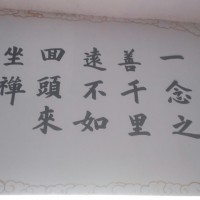 一念之
善千里
遠不如
回頭來
坐禪